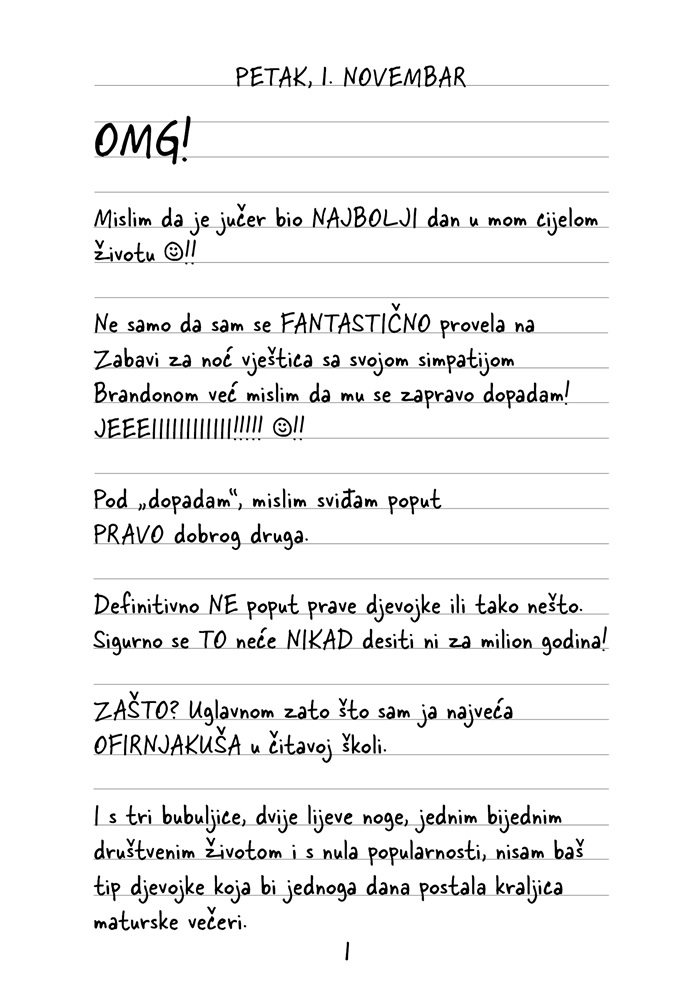 PETAK, 1. NOVEMBAR
OMG!
Mislim da je jučer bio NAJBOLJI dan u mom cijelom
životu ☺!!
Ne samo da sam se FANTASTIČNO provela na
Zabavi za noć vještica sa svojom simpatijom
Brandonom već mislim da mu se zapravo dopadam!
JEEEIIIIIIIIIIII!!!!! ☺!!
Pod „dopadam“, mislim sviđam poput
PRAVO dobrog druga.
Definitivno NE poput prave djevojke ili tako nešto.
Sigurno se TO neće NIKAD desiti ni za milion godina!
ZAŠTO? Uglavnom zato što sam ja najveća
OFIRNJAKUŠA u čitavoj školi.
I s tri bubuljice, dvije lijeve noge, jednim bijednim
društvenim životom i s nula popularnosti, nisam baš
tip djevojke koja bi jednoga dana postala kraljica
maturske večeri.
1